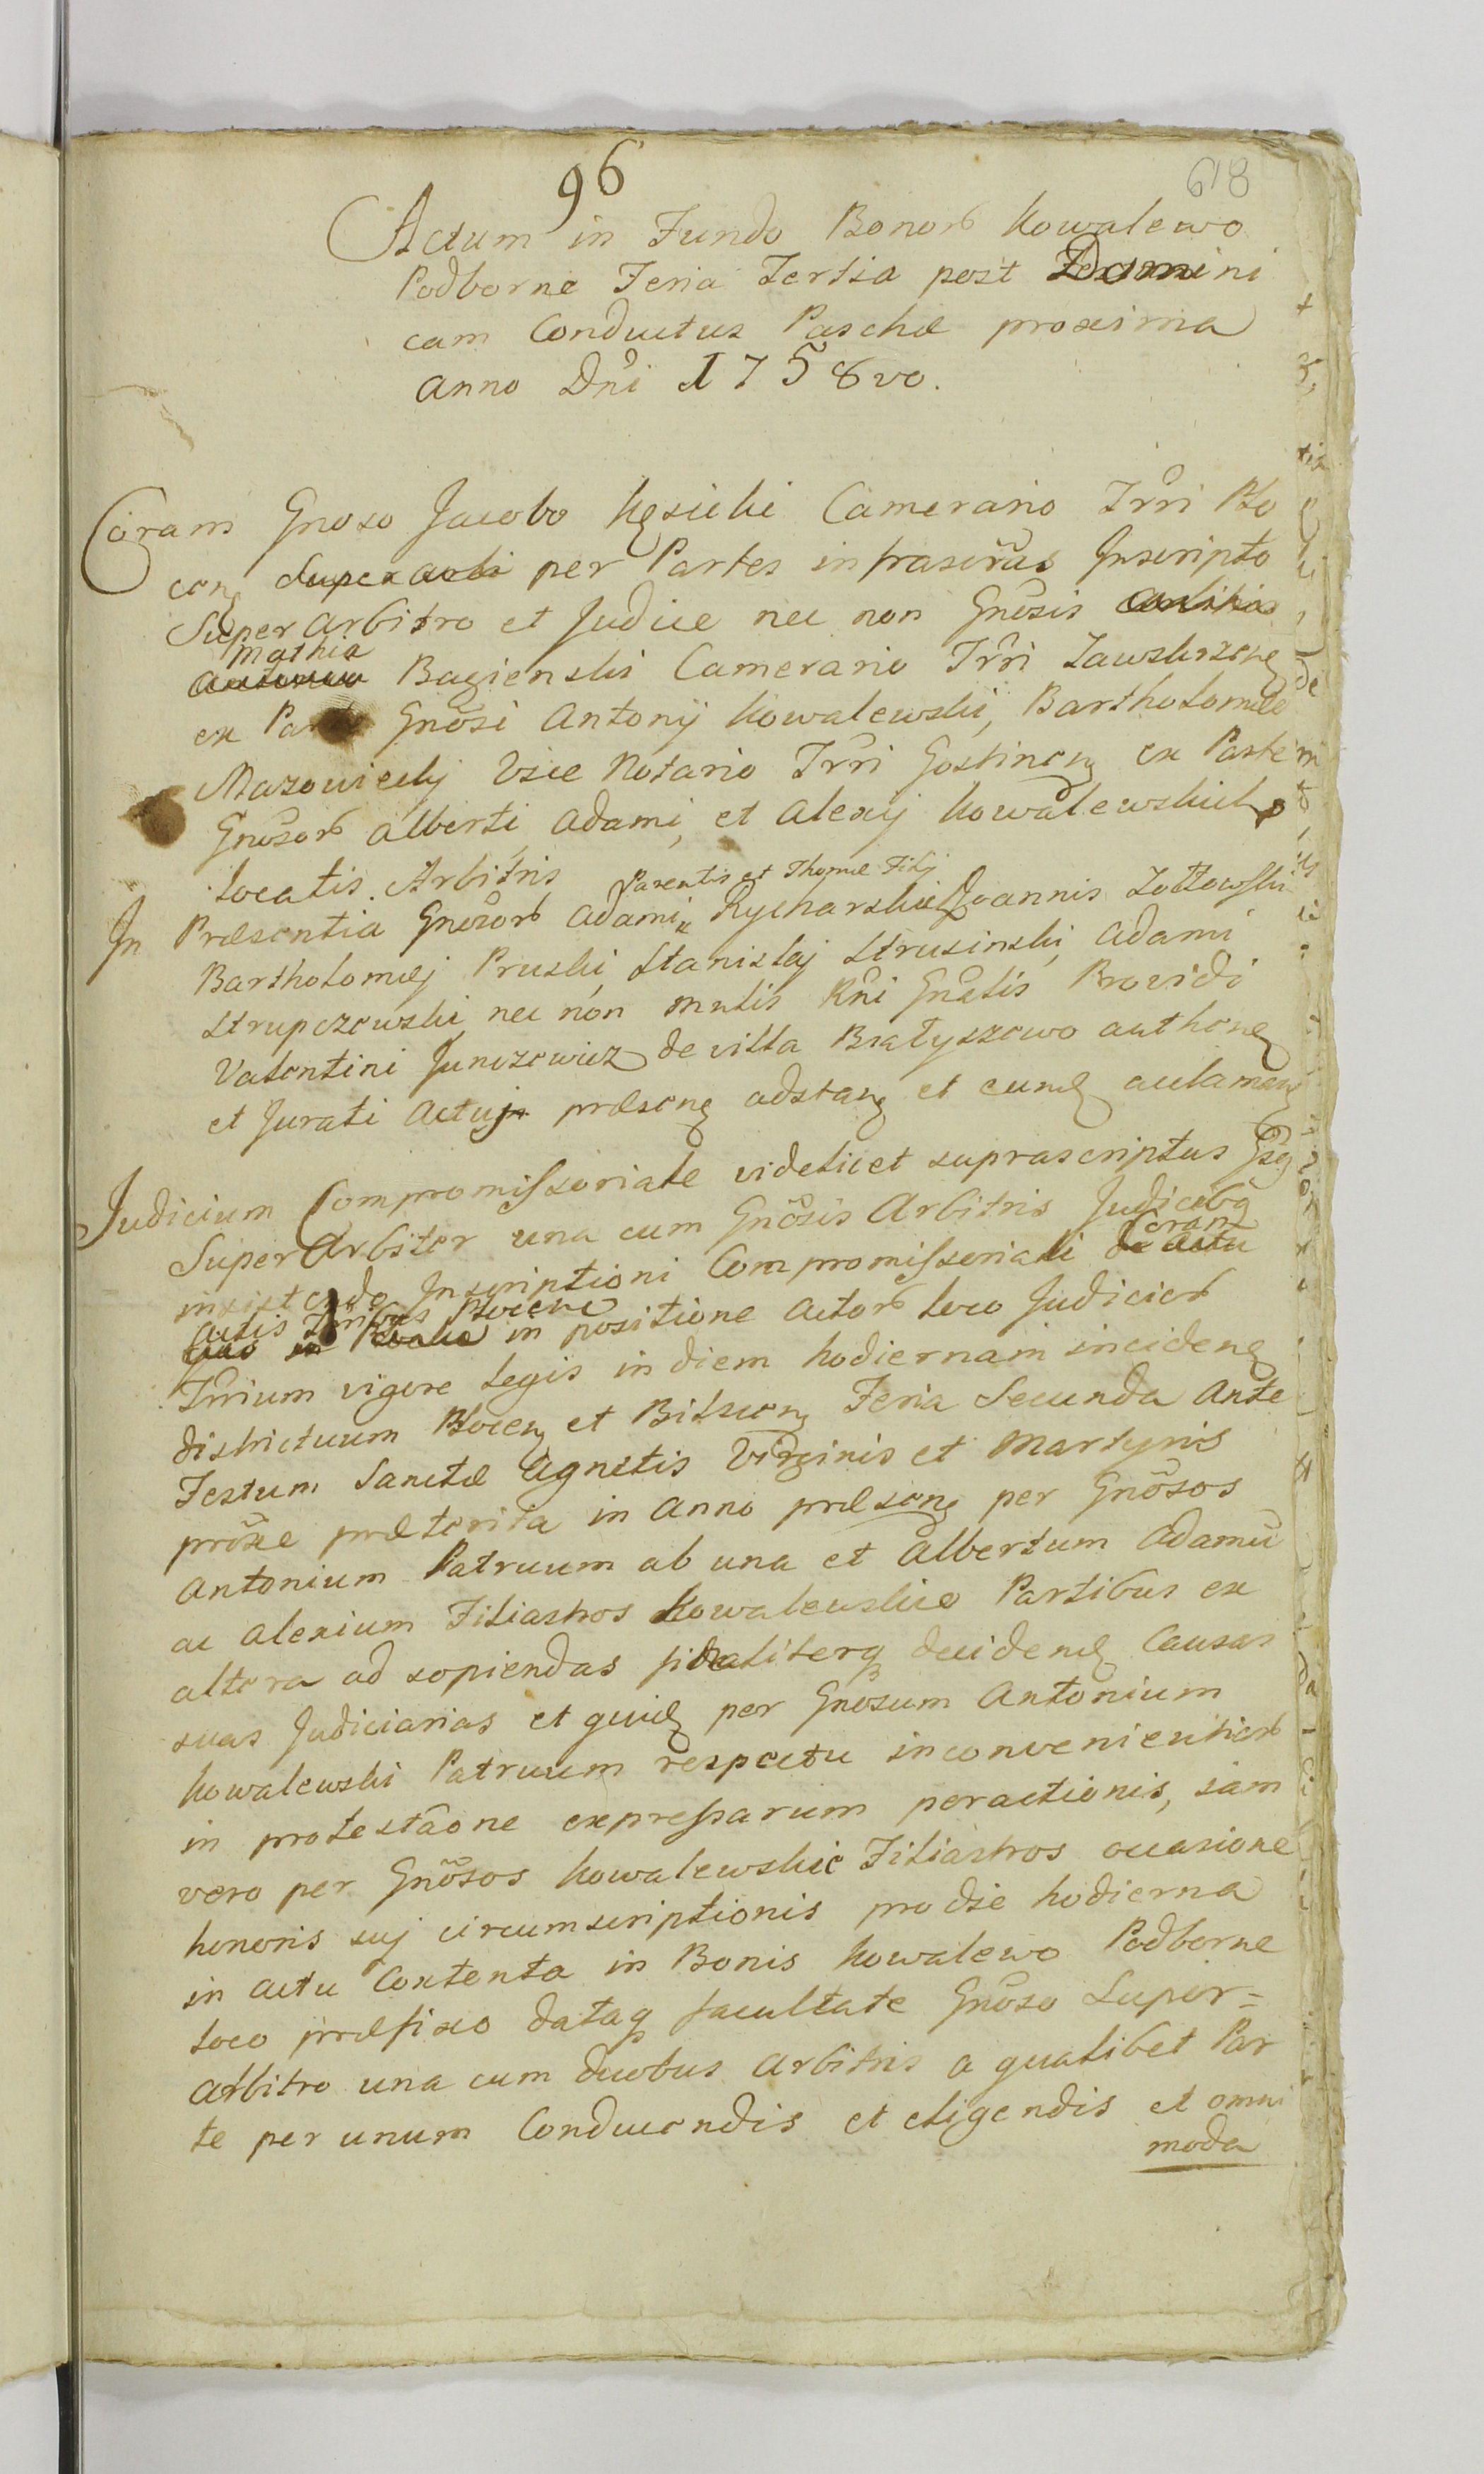 96
618
Actum in Fundo Bonorb Kowalewo
Podborne Feria Tertia post Domini
cam Conductus Paschæ proxima
anno Dñi 1758vo.
Coram Gnoso Jacobo Kęsicki Camerario Trri Plo
cen̨ per Partes infrascr̃as Inscripto
Super Arbitro et Judice nec non Gnõsis
Mathia
Bagienski Camerario Trr̃i Zawskrzen̨
ex Parte Gnõsi Antonij Kowalewski, Bartholomæo
Mazowiecky Vice Notario Trr̃i Gostinen̨ ex Parte
Gnõsorb Alberti, Adami, et Alexij Kowalewskich
locatis Arbitris
Parentis et Thomæ Filij
In Præsentia Gnõsorb Adami Rycharskich Joannis Zołtowski
Bartholomæj Pruski, Stanislaj Strusinski, Adami
Strupczewski nec non Mnlis Rñi Gñalis Providi
Valentini Junczewicz de villa Białyszewo authen̨
et Jurati Actuj præsen̨ adstan̨ et eund̨ aulaman̨
Judicium Compromissoriale videlicet suprascriptus Gsg
Super Arbiter una cum Gnõsis Arbitris Judicibg
Coram
insistendo Inscriptioni Compromissoriali
Actis Trr̃ibus Plocene
in positione Actorb loco Judiciorb
Trr̃ium vigore Legis in diem hodiernam inciden̨
districtuum Plocen̨ et Bilscen̨ Feria Secunda Ante
Festum Sanctæ Agnetis Virginis et Martyris
proxe præterita in Anno præsen̨ per Gnõsos
Antonium Patruum ab una et Albertum Adamũ
ac Alexium Filiastros Kowalewskie Partibus ex
altera ad sopiendas finaliterq̨ decidend̨ Causas
suas Judiciarias et quid̨ per Gnõsum Antonium
Kowalewski Patruum respectu inconvenientiarb
in protestãone expressarum peractionis, jam
vero per Gnõsos Kowalewskie Filiastros occasione
honoris suj circumscriptionis pro die hodierna
in Actu Contenta in Bonis Kowalewo Podborne
loco præfixo dataq̨ facultate Gnõso Super=
Arbitro una cum duobus Arbitris a qualibet Par
te per unum Conducendis et eligendis et omni
moda